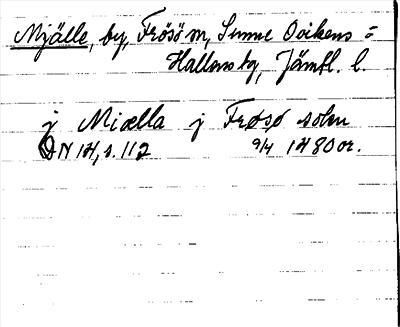 Mjälle, by, Frösö sn, Sunne Ovikens o
Hallens tg, Jämtl. l.
j Miælla j Frøsø sokn
DN 14, s. 112 9/4 1480 or.